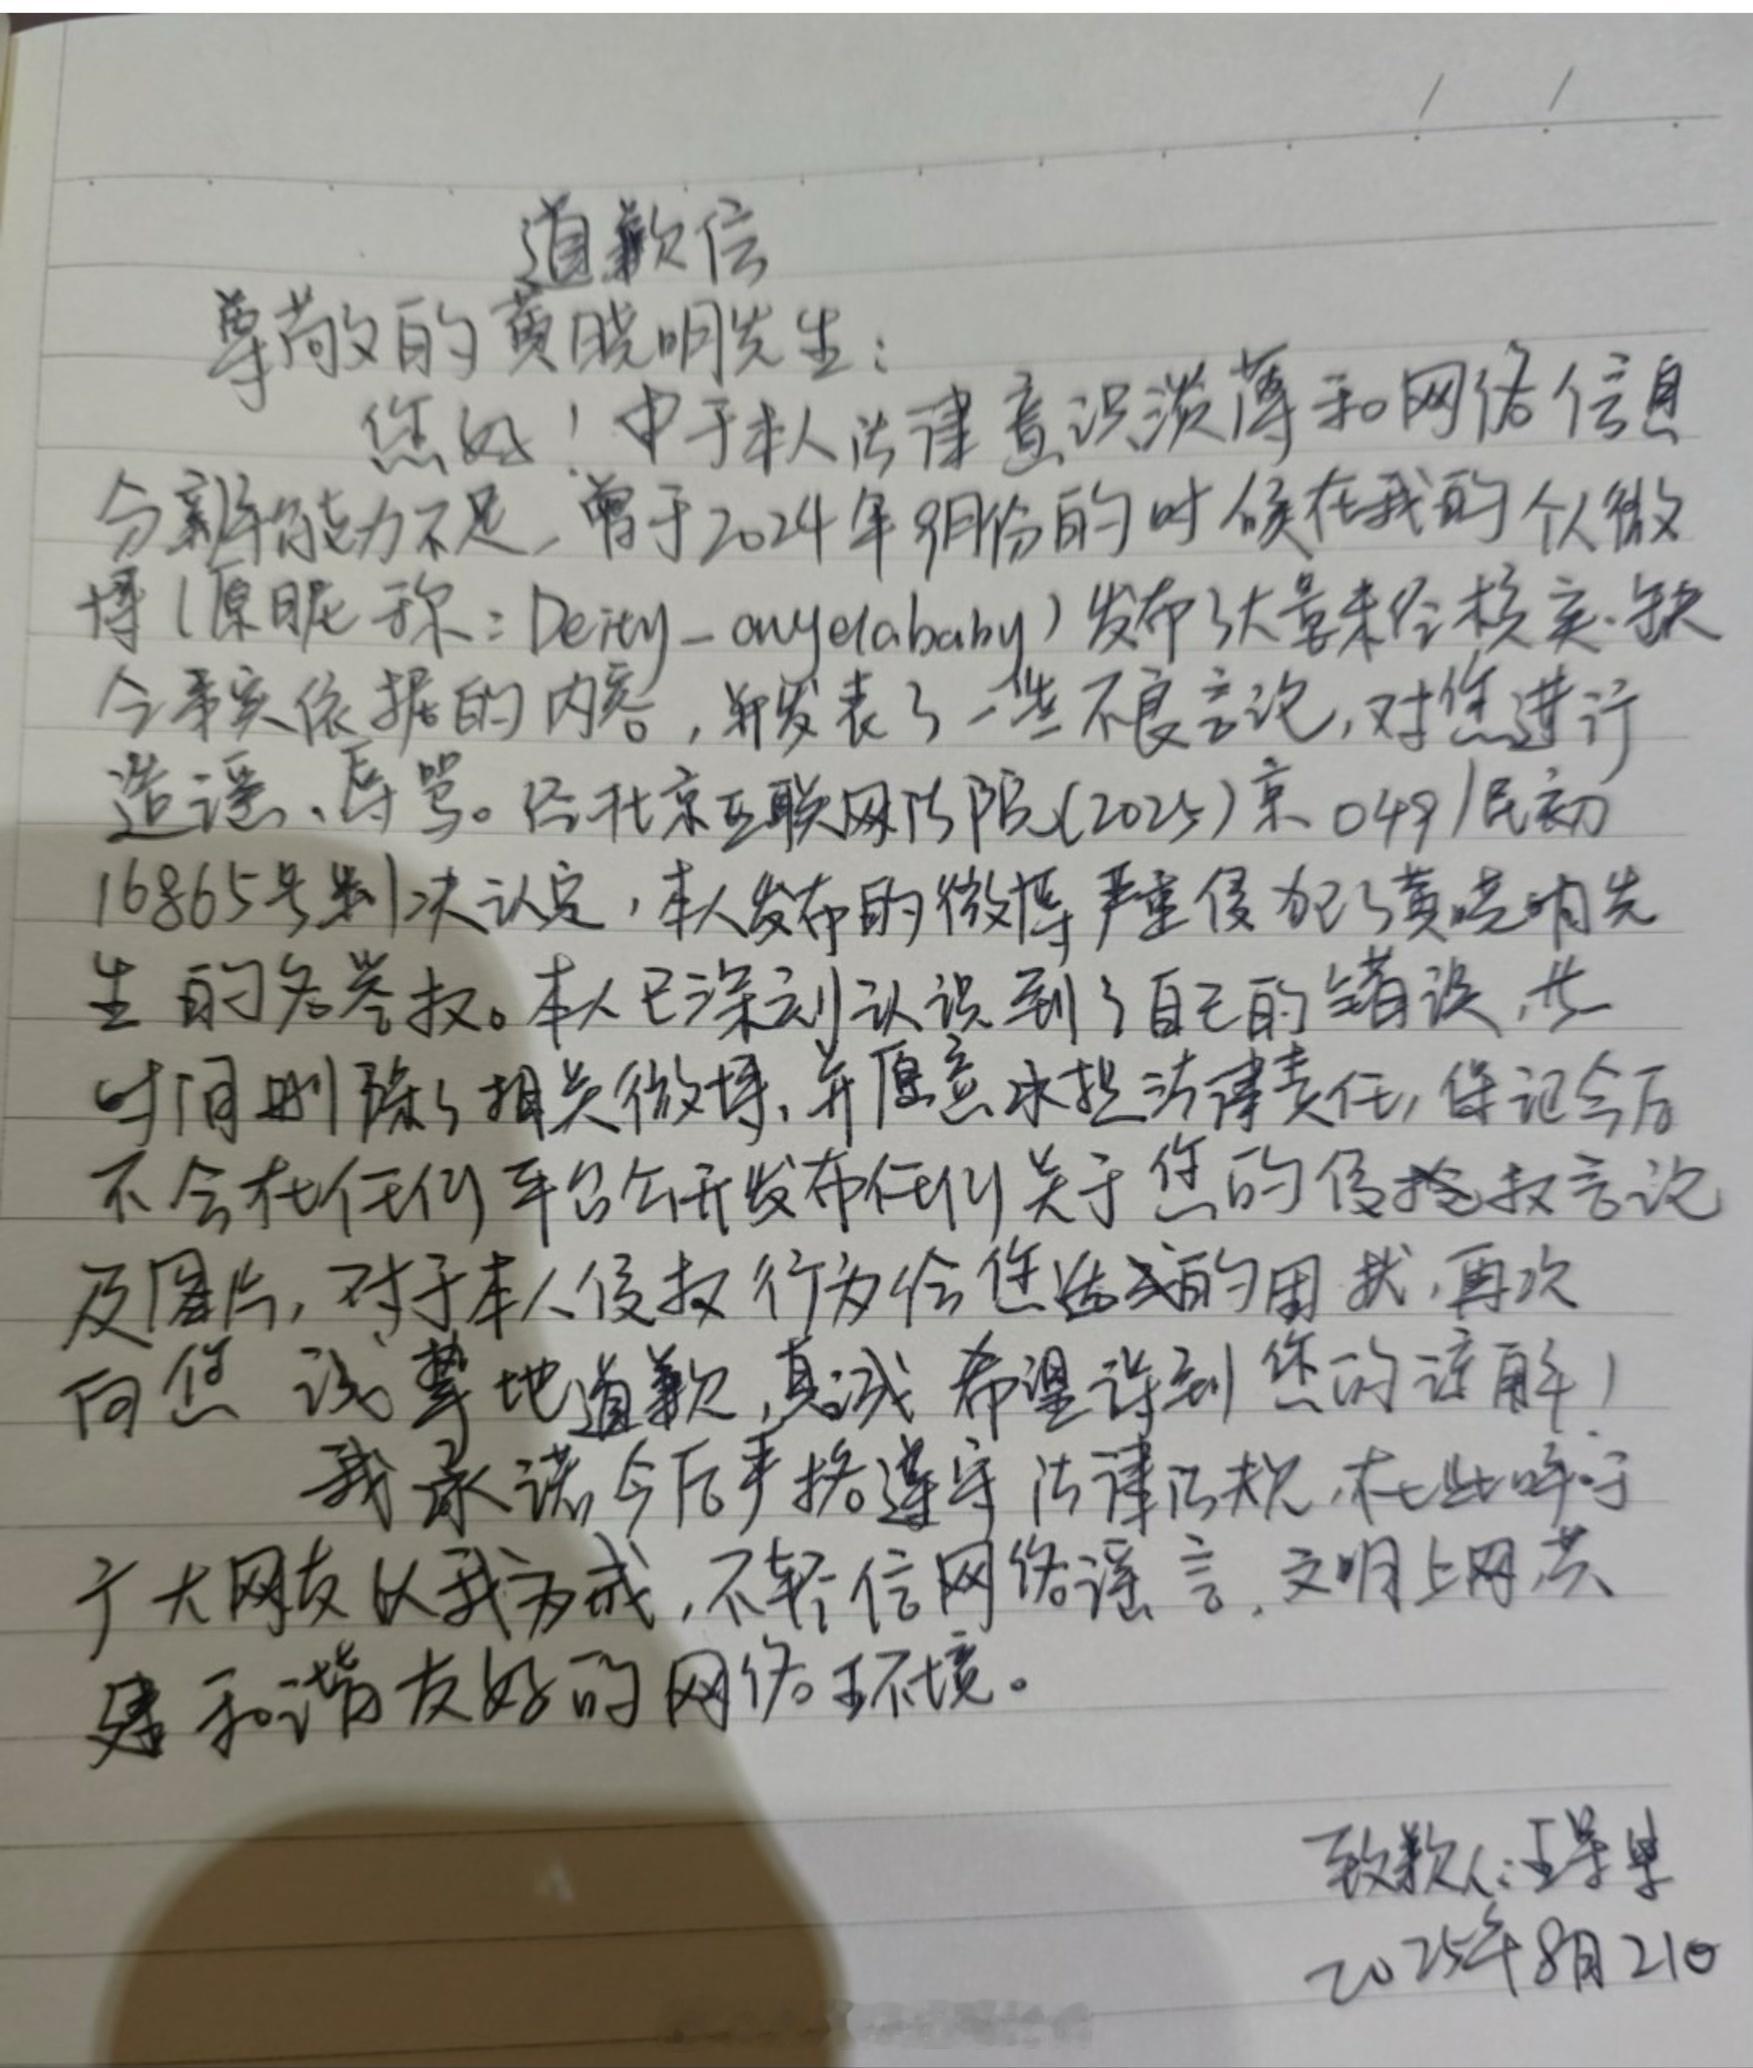 道歉信
尊敬的黄晓明先生：
您好！由于本人法律意识淡薄和网络信息
分辨能力不足，曾于2024年9月份的时候在我的个人微
博（原昵称：Deity_angelababy）发布了大量未经核实、缺
乏事实依据的内容，并发表了一些不良言论，对您进行
造谣、辱骂。经北京互联网法院（2025）京0491民初
16865号判决认定，本人发布的微博严重侵犯了黄晓明先
生的名誉权。本人已深刻认识到了自己的错误，此
时间删除了相关微博，并愿意承担法律责任，保证今后
不会在任何平台公开发布任何关于您的侵权言论
及图片，对于本人侵权行为给您造成的困扰，再次
向您诚挚地道歉，真诚希望得到您的谅解！
我承诺今后严格遵守法律法规，在此呼吁
广大网友以我为戒，不轻信网络谣言，文明上网，共
建和谐友好的网络环境。
致歉人：王
2025年8月21日